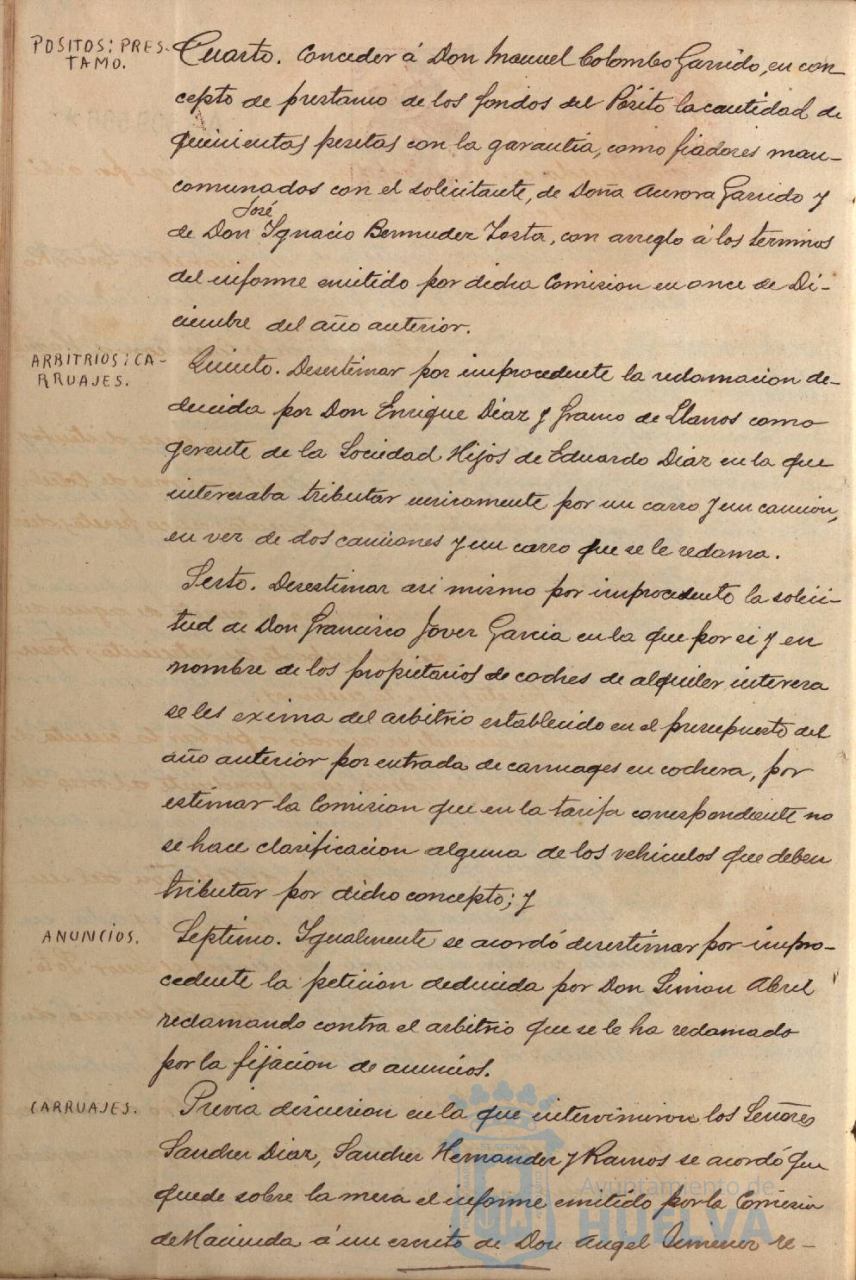 POSITOS: PRES-
TAMO.
Cuarto. Conceder á Don Manuel Colombo Garrido, en con
cepto de prestamo de los fondos del Pósito la cantidad de
quinientas pesetas con la garantia, como fiadores man-
comunados con el solicitante, de Doña Aurora Garrido y
José
de Don Ignacio Bermudez Zosta, con arreglo á los terminos
del informe emitido por dicha Comision en once de Di-
ciembre del año anterior.
ARBITRIOS: CA-
RRUAJES.
Quinto. Desestimar por improcedente la reclamacion de-
ducida por Don Enrique Diaz y Franco de Llanos como
gerente de la Sociedad Hijos de Eduardo Diaz en la que
interesaba tributar unicamente por un carro y un camion,
en vez de dos camiones y un carro que se le reclama.
Sesto. Desestimar asi mismo por improcedente la solici-
tud de Don Francisco Jover Garcia en la que por si y en
nombre de los propietarios de coches de alquiler interesa
se les exima del arbitrio establecido en el presupuesto del
año anterior por entrada de carruages en cochera, por
estimar la Comision que en la tarifa correspondiente no
se hace clasificacion alguna de los vehiculos que deben
tributar por dicho concepto; y
ANUNCIOS.
Septimo. Igualmente se acordó desestimar por impro-
cedente la petición deducida por Don Simon Abril
reclamando contra el arbitrio que se le ha reclamado
por la fijación de anuncios.
CARRUAJES.
Previa discusion en la que intervinieron los Señores
Sanchez Diaz, Sanchez Hernandez y Ramos se acordó que
quede sobre la mesa el informe emitido por la Comision
de Hacienda á un escrito de Don Angel Jimenez re-
Ayuntamiento de
HUELVA